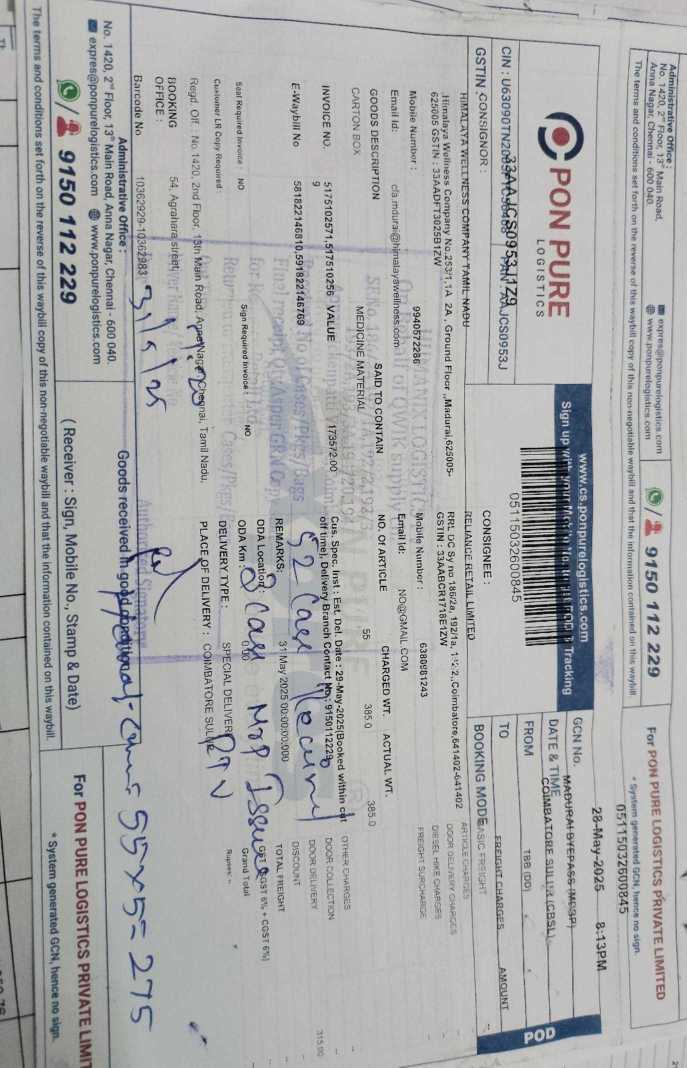 Administrative Office :
No. 1420, 2nd Floor, 13th Main Road,
Anna Nagar, Chennai - 600 040.
expres@ponpurelogistics.com
www.ponpurelogistics.com
9150 112 229
The terms and conditions set forth on the reverse of this waybill copy of this non-negotiable waybill and that the information contained on this waybill.
For PON PURE LOGISTICS PRIVATE LIMITED
* System generated GCN, hence no sign.
PON PURE
LOGISTICS
www.cs.ponpurelogistics.com
Sign up with your
Tracking
05115032600845
GCN No. 05115032600845
DATE & TIME 28-May-2025 8:13PM
FROM MADURAI BYEPASS
TO COIMBATORE SULUR (CBSL)
BOOKING MODE TBB (DD)
POD
CIN : U63090TN
PAN : AAJCS0953J
GSTIN : 33AAJCS0953J1Z9
CONSIGNOR :
HIMALAYA WELLNESS COMPANY TAMIL NADU
,Himalaya Wellness Company No.253/1,1A 2A , Ground Floor ,,Madurai,625005-
625005 GSTIN : 33AADFT3025B1ZW
Mobile Number : 9940572286
Email Id: cfa.mdurai@himalayawellness.com
CONSIGNEE :
RELIANCE RETAIL LIMITED
RRL DC Sy no 186/2a, 192/1a, Coimbatore,641402-641402
GSTIN : 33AABCR1718E1ZW
Mobile Number : 6380981243
Email Id: NO@GMAIL.COM
FREIGHT CHARGES AMOUNT
BASIC FREIGHT
ARTICLE CHARGES
DOOR DELIVERY CHARGES
DIESEL HIKE CHARGES
FREIGHT SURCHARGE
OTHER CHARGES
DOOR COLLECTION
DOOR DELIVERY 315.00
DISCOUNT
TOTAL FREIGHT
GST ( SGST 6% + CGST 6%)
Grand Total
Rupees:
GOODS DESCRIPTION SAID TO CONTAIN NO. OF ARTICLE CHARGED WT. ACTUAL WT.
CARTON BOX MEDICINE MATERIAL 55 385.0 385.0
INVOICE NO. 5175102571,517510256
9
VALUE 173572.00
Cus. Spec. Inst : Est. Del. Date : 29-May-2025(Booked within cut
off time), Delivery Branch Contact No.: 9150112229
E-Waybill No 581822146810,591822146769
REMARKS: 31 May 2025 00:00:00:000
52 Case Received
3 Case MRP Issue
RTV
Seal Required Invoice : NO
Sign Required Invoice : NO
ODA Location :
ODA Km : 0.00
Customer LR Copy Required :
DELIVERY TYPE : SPECIAL DELIVERY
Regd. Off. : No.1420, 2nd Floor, 13th Main Road, Anna Nagar, Chennai, Tamil Nadu,
PLACE OF DELIVERY : COIMBATORE SULUR
BOOKING
OFFICE : 54, Agrahara street,
Barcode No 10362929-10362983
31/5/25
Authorised Signatory
Administrative Office :
No. 1420, 2nd Floor, 13th Main Road, Anna Nagar, Chennai - 600 040.
expres@ponpurelogistics.com www.ponpurelogistics.com
9150 112 229
Goods received in good condition
55x5=275
( Receiver : Sign, Mobile No., Stamp & Date)
For PON PURE LOGISTICS PRIVATE LIMIT
* System generated GCN, hence no sign.
The terms and conditions set forth on the reverse of this waybill copy of this non-negotiable waybill and that the information contained on this waybill.